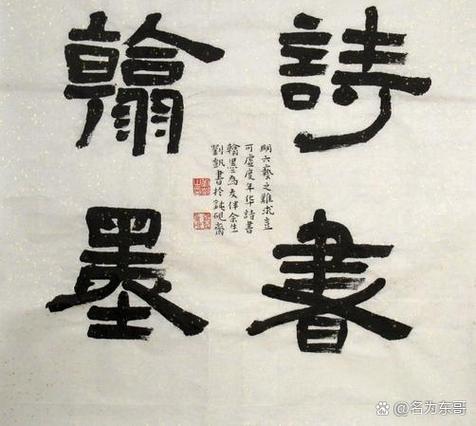 詩書
翰墨
明六藝之難求豈
可虛度年华詩書
翰墨為友伴余生
劉釩書於鈍硯齋
名为东哥